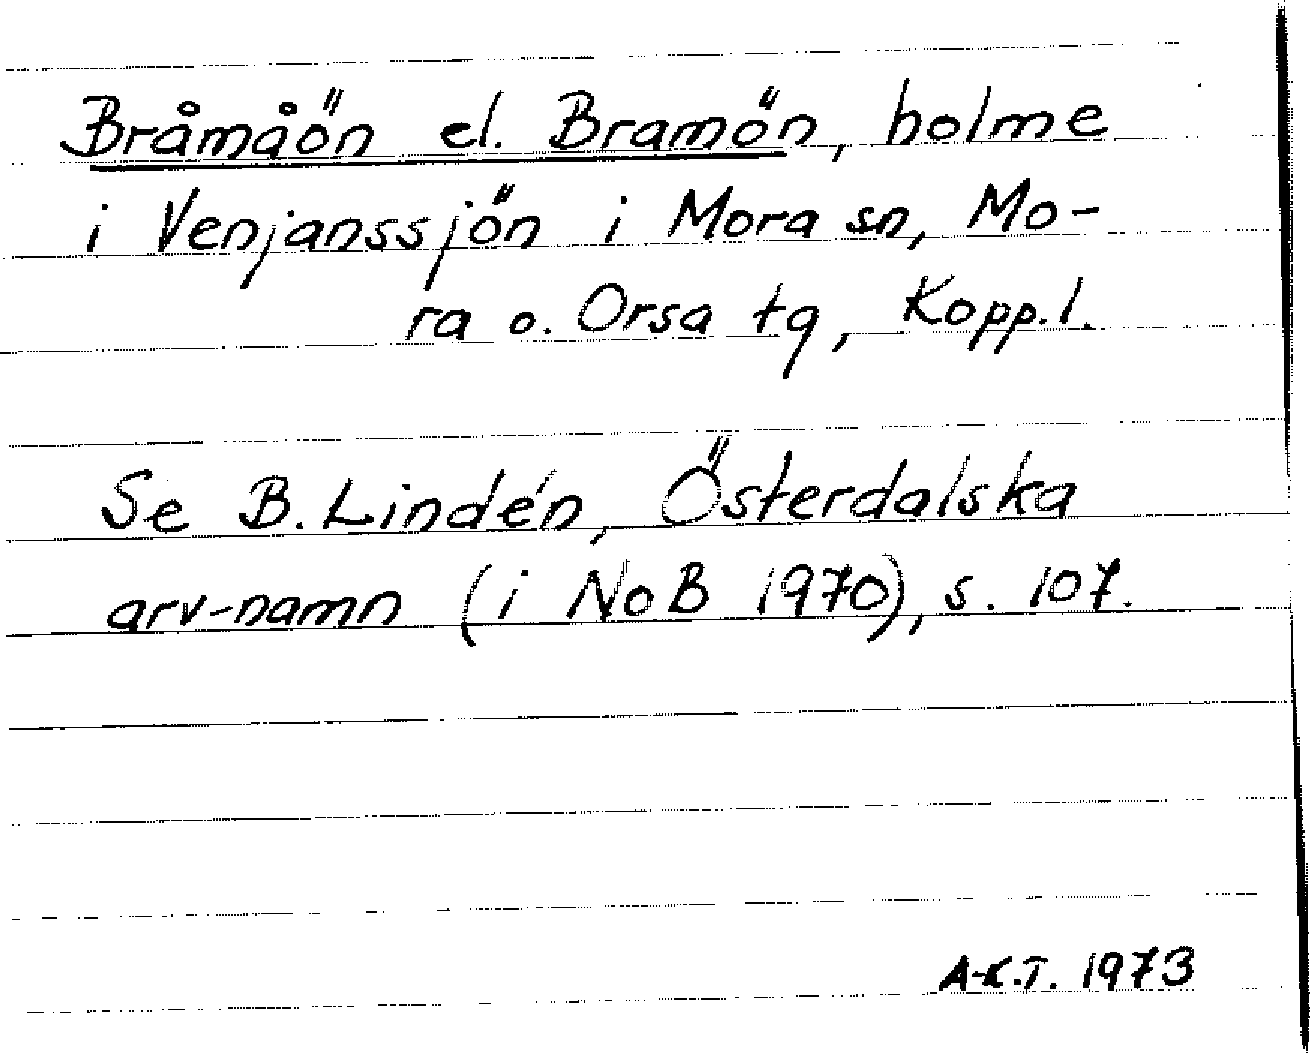 Bråmåön el. Bramön, holme
i Venjanssjön i Mora sn, Mo-
ra o. Orsa tg, Kopp.l.
Se B. Lindén, Österdalska
arv-namn (i NoB 1970), s. 107.
A-K.T. 1973